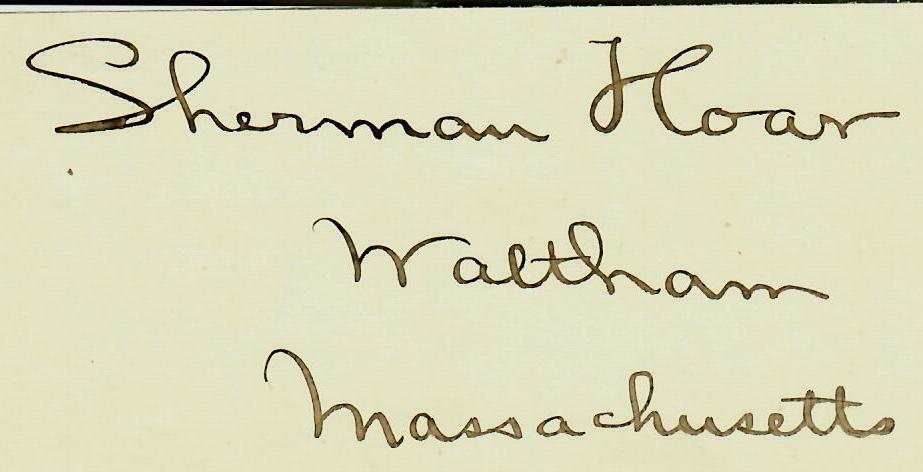 Sherman Hoar
Waltham
Massachusetts